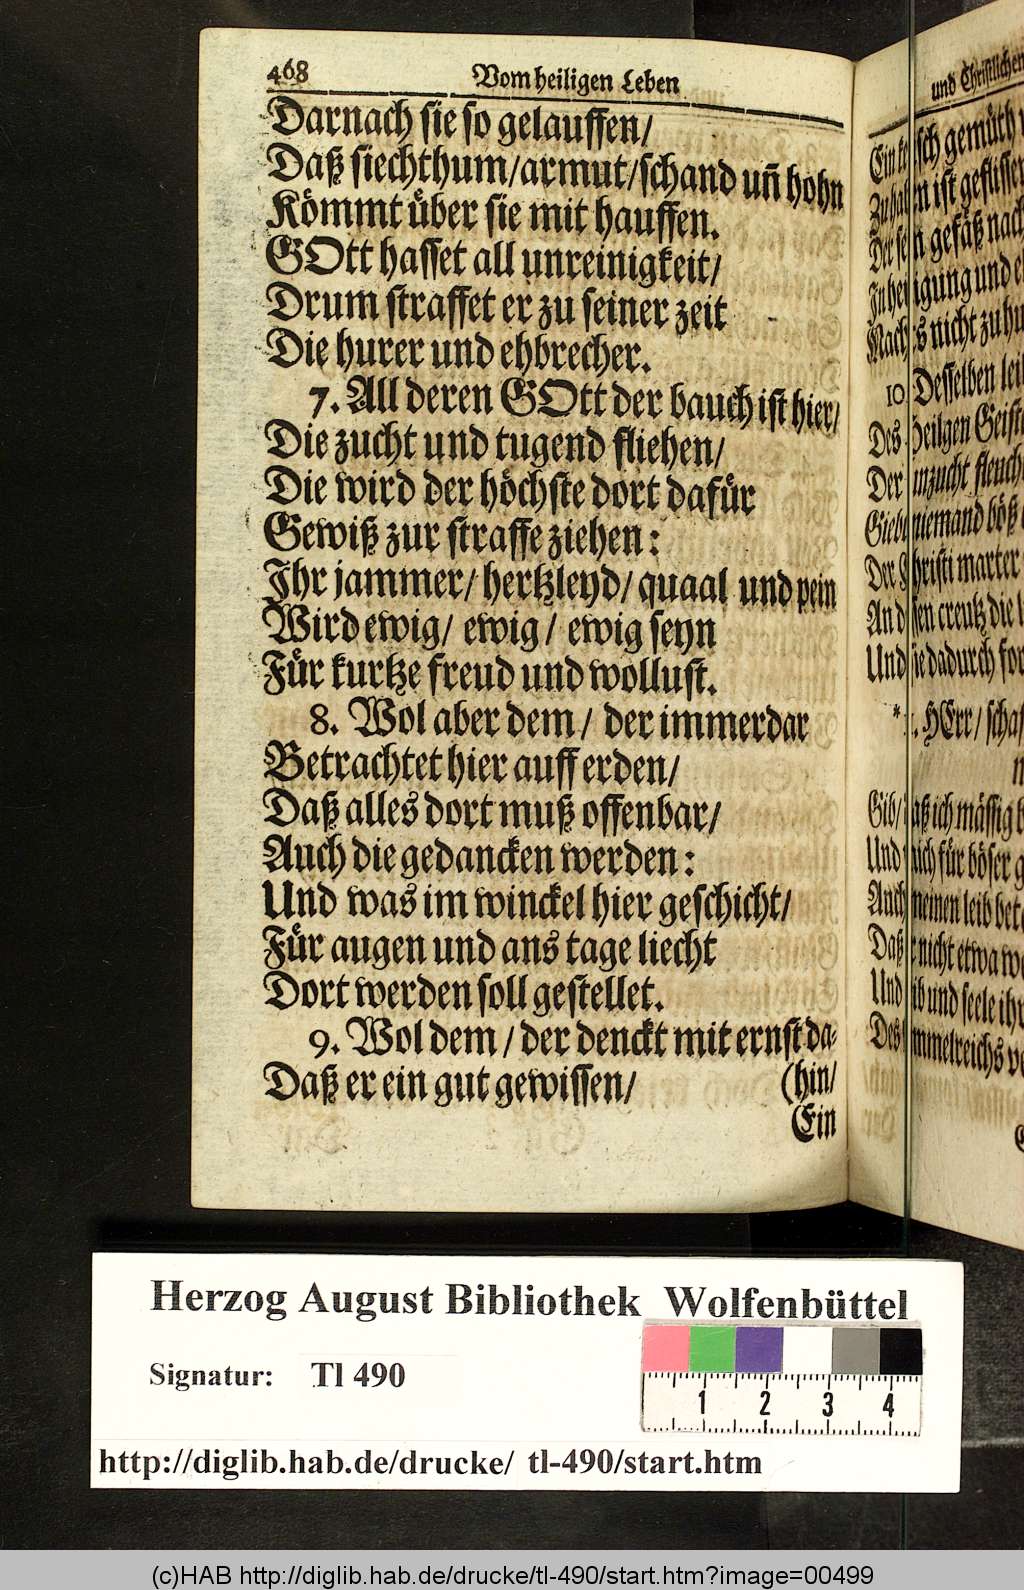 468
Vom heiligen Leben
Darnach sie so gelauffen/
Daß siechthum/armut/schand uñ hohn
Kömmt über sie mit hauffen.
GOtt hasset all unreinigkeit/
Drum straffet er zu seiner zeit
Die hurer und ehbrecher.
7. All deren GOtt der bauch ist hier/
Die zucht und tugend fliehen/
Die wird der höchste dort dafür
Gewiß zur straffe ziehen:
Ihr jammer/ hertzleyd/ quaal und pein
Wird ewig/ ewig/ ewig seyn
Für kurtze freud und wollust.
8. Wol aber dem/ der immerdar
Betrachtet hier auff erden/
Daß alles dort muß offenbar/
Auch die gedancken werden:
Und was im winckel hier geschicht/
Für augen und ans tage liecht
Dort werden soll gestellet.
9. Wol dem/ der denckt mit ernst da-
Daß er ein gut gewissen/ (hin/
Ein
und Christlichen
gemüth
ist
gefäß nach
und
nicht zu
10. Desselben
Des Heilgen
Der
niemand böß
marter
creutz die
Und sie dadurch
HErr/
Gib/ daß ich mässig
Und für böser
Auch meinen leib
Daß nicht etwa
Und und seele
Des
Herzog August Bibliothek Wolfenbüttel
Signatur: Tl 490
1 2 3 4
http://diglib.hab.de/drucke/ tl-490/start.htm
(c)HAB http://diglib.hab.de/drucke/tl-490/start.htm?image=00499